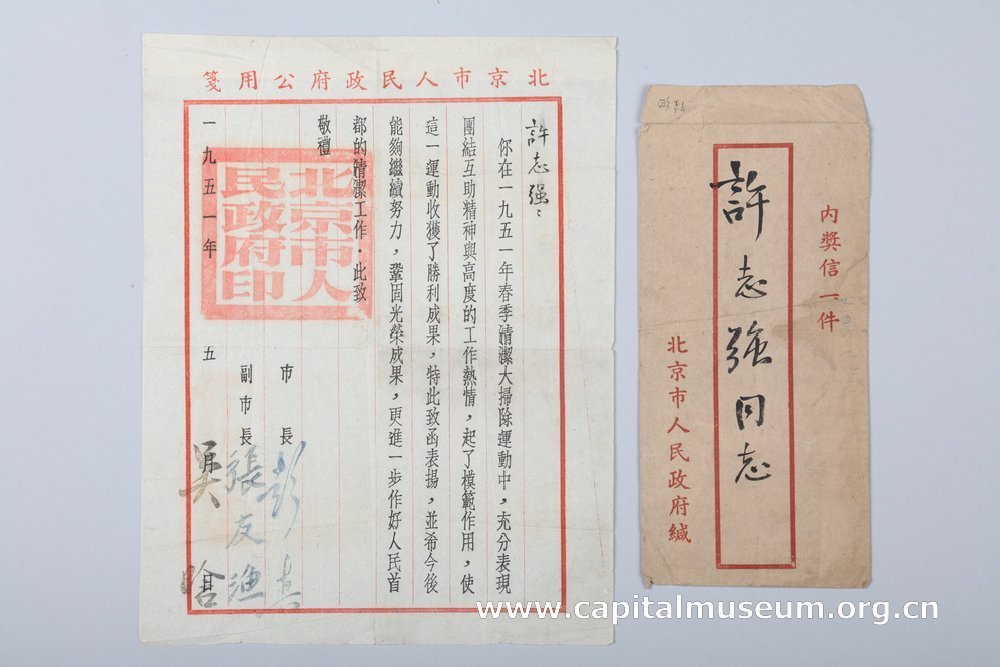 北京市人民政府公用箋
許志强：
你在一九五一年春季清潔大掃除運動中，充分表現
團結互助精神與高度的工作熱情，起了模範作用，使
這一運動收獲了勝利成果，特此致函表揚，並希今後
能夠繼續努力，鞏固光榮成果，更進一步作好人民首
都的清潔工作．此致
敬禮
市長 彭真
副市長 張友漁
吳晗
一九五一年 五 月 日
北京市人民政府印
内獎信一件
許志强同志
北京市人民政府緘
www.capitalmuseum.org.cn